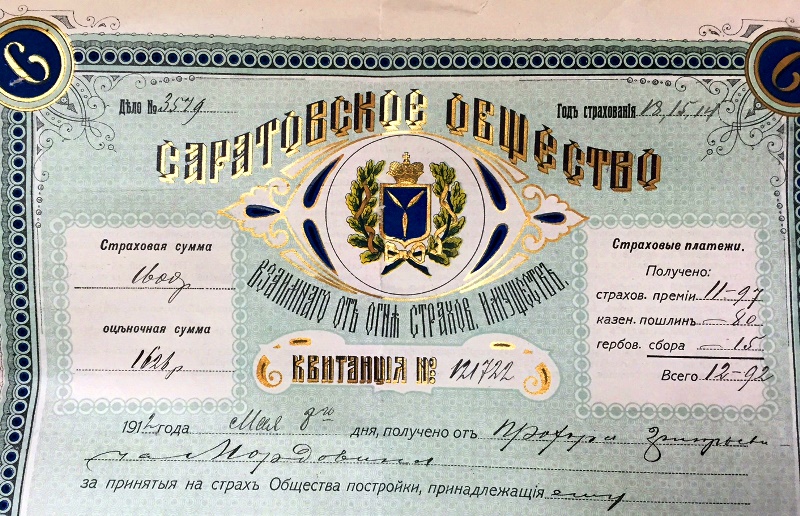 Дѣло № 3579
Годъ страхованія
САРАТОВСКОЕ ОБЩЕСТВО
ВЗАИМНАГО ОТЪ ОГНЯ СТРАХОВ. ИМУЩЕСТВЪ
Страховая сумма
оцѣночная сумма
Страховые платежи.
Получено:
страхов. преміи 11-97
казен. пошлинъ -80
гербов. сбора -15
Всего 12-92
КВИТАНЦІЯ № 121722
1912 года Мая 8го дня, получено отъ
Мордовина
за принятыя на страхъ Общества постройки, принадлежащія ему